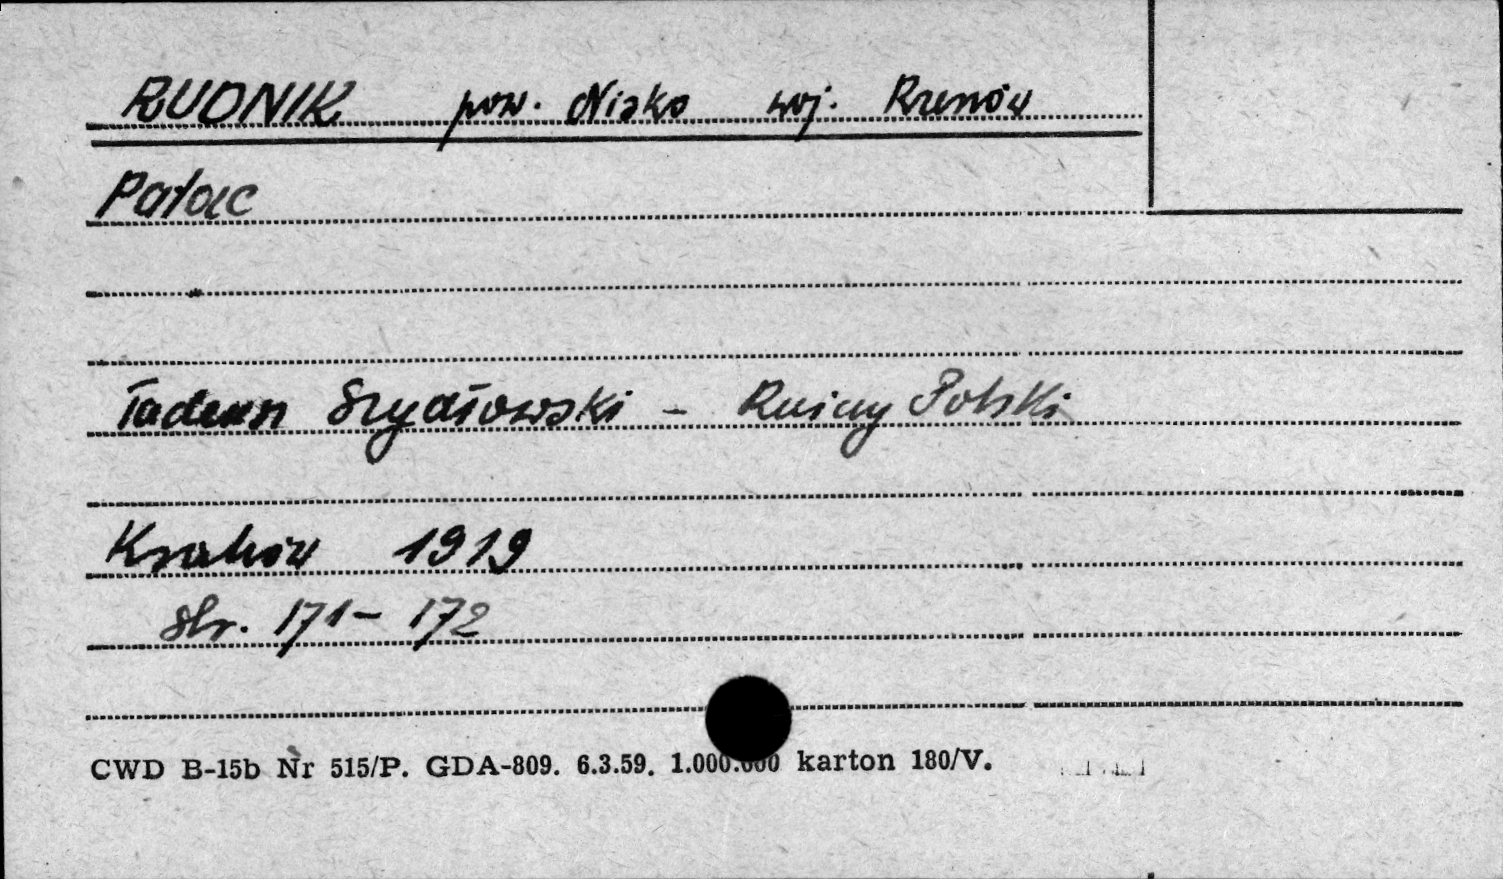 RUDNIK pow. Nisko woj. Rzeszów
Pałac
Tadeusz Szydłowski - Ruiny Polski
Kraków 1919
str. 171-172
CWD B-15b Nr 515/P. GDA-809. 6.3.59. 1.000.000 karton 180/V.